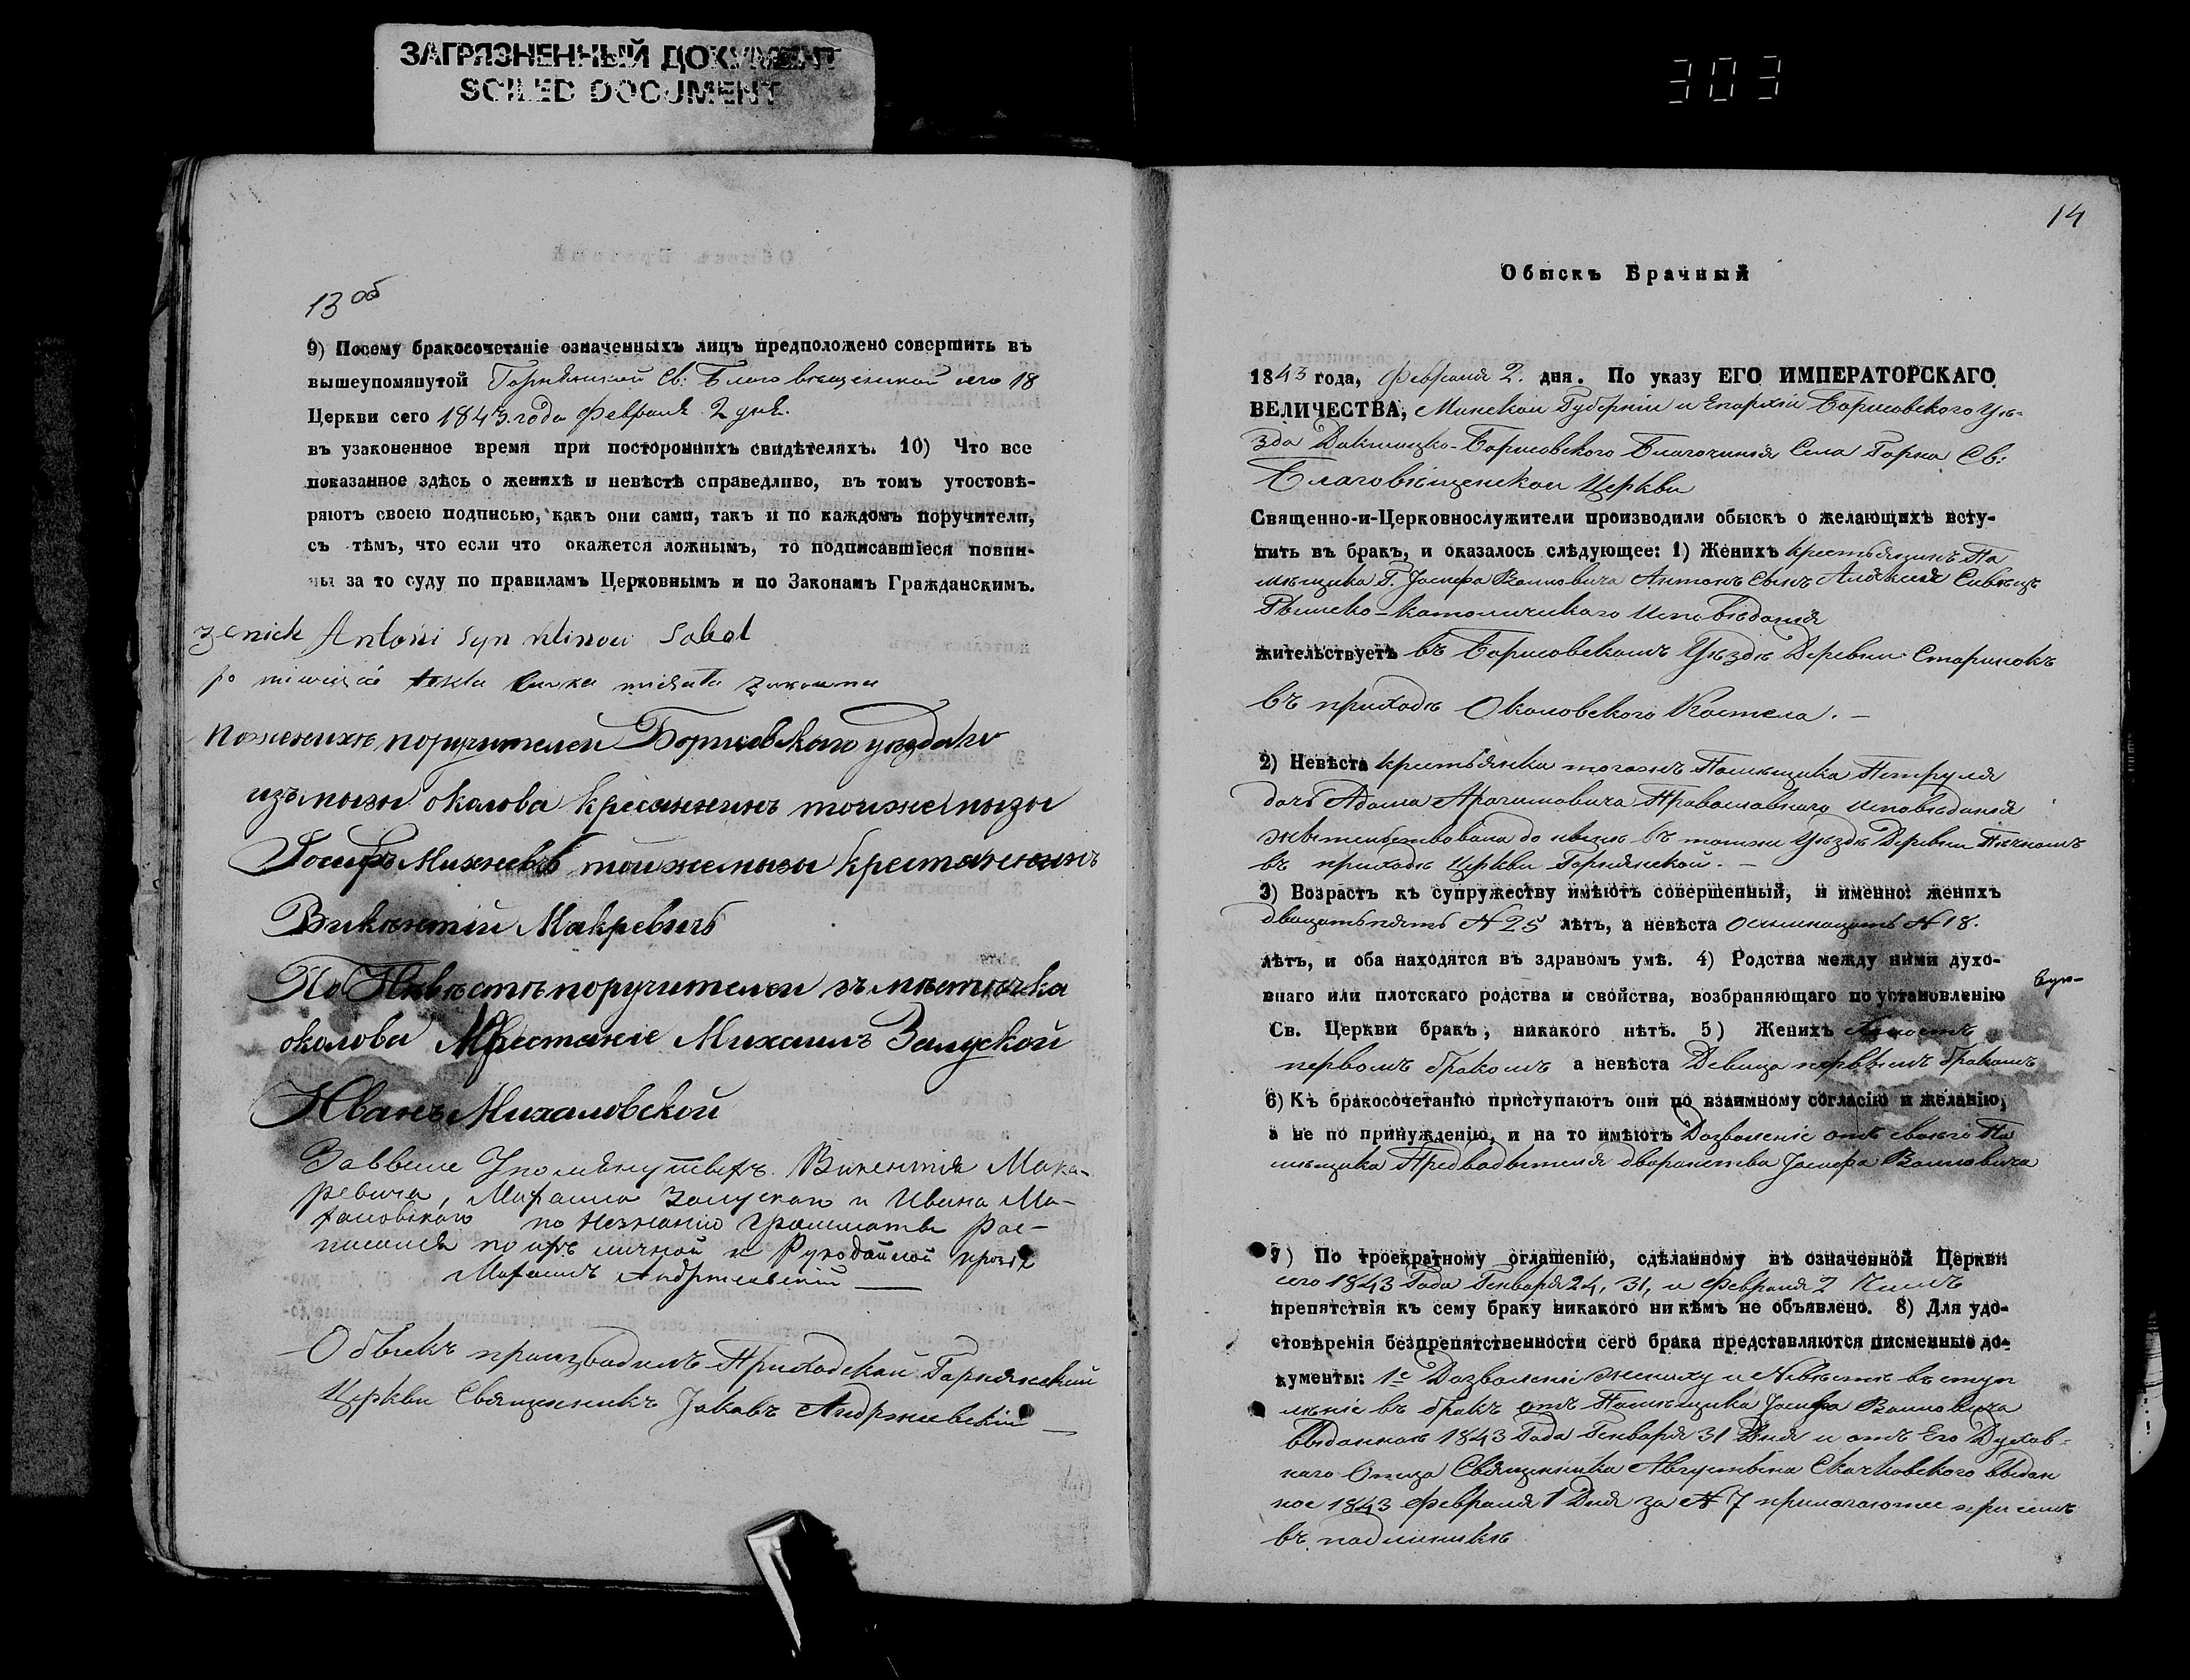 ЗАГРЯЗНЕННЫЙ ДОКУМЕНТ
SOILED DOCUMENT
303
13 об
9) Посему бракосочетаніе означенныхъ лицъ предположено совершить въ
вышеупомянутой Св: Благовещенской сего 18
Церкви сего 1843. года февраля 2 дня.
въ узаконенное время при постороннихъ свидѣтеляхъ. 10) Что все
показанное здѣсь о женихѣ и невѣстѣ справедливо, въ томъ утостовѣ-
ряютъ своею подписью, какъ они сами, такъ и по каждомъ поручители,
съ тѣмъ, что если что окажется ложнымъ, то подписавшіеся повин-
ны за то суду по правиламъ Церковнымъ и по Законамъ Гражданскимъ.
Antoni Syn
По женихѣ поручителеи Борисовского уезда
изъ мызы околова тоиже мызы
Іосифъ той же мызы
Викентій Макревичъ
По Невѣстѣ поручителеи зъ мѣстечка
околова Михаилъ Залуской
Иванъ Михаловской
За выше Упомянутыхъ Викентія Мака-
ревича, Михаила Залускаго и Ивана Ми-
халовского по незнанію грамматы рос-
писался по ихъ личной и Рукодайной прозбѣ
Михаилъ Андржиевскій
Обыскъ производилъ Приходской Горнянской
Церкви Священникъ Іаковъ Андржиевскій
14
Обыскъ Брачный
1843 года, февраля 2. дня. По указу ЕГО ИМПЕРАТОРСКАГО
ВЕЛИЧЕСТВА, Минской Губерніи и Епархіи Борисовского Уѣ-
зда Докшицко-Борисовского Благочинія Села Горна Св:
Благовѣщенской Церкви
Священно-и-Церковнослужители производили обыскъ о желающихъ всту-
пить въ бракъ, и оказалось слѣдующее: 1) Женихъ крестьянинъ По
мѣщика Г. Іосифа Антонъ Сынъ
Римско-католическаго исповѣданія
жительствуетъ въ Борисовскомъ Уѣздѣ Деревни Старинокъ
въ приходѣ Околовского Костела. –
2) Невѣста крестьянка тогожъ Помѣщика Петруля
дочь Адама Православнаго исповѣданія
жительствовала до нынѣ въ томже Уѣздѣ Деревни
въ приходѣ Церкви Горнянской. –
3) Возрастъ къ супружеству имѣютъ совершенный, и именно: женихъ
двацать пять № 25 лѣтъ, а невѣста осьмнацать № 18.
лѣтъ, и оба находятся въ здравомъ умѣ. 4) Родства между ними духо-
внаго или плотскаго родства и свойства, возбраняющаго по установленію
Св. Церкви бракъ, никакого нѣтъ. 5) Женихъ
первомъ бракомъ а невѣста Девица первымъ бракомъ
6) Къ бракосочетанію приступаютъ они по взаимному согласію и желанію,
а не по принужденію, и на то имѣютъ Дозволеніе отъ своего По
мѣщика Предводителя дворянства Іосифа
7) По троекратному оглашенію, сдѣланному въ означенной Церкви
сего 1843 Года Генваря 24, 31, и февраля 2 Чисмъ
препятствія къ сему браку никакого ни кѣмъ не объявлено. 8) Для удо-
стовѣренія безпрепятственности сего брака представляются писменные до-
кументы: 1е Дозволеніе жениху и Невѣстѣ въ ступ
лѣніе въ бракъ отъ Помѣщика Іосифа
выданное 1843 Года Генваря 31 Дня и отъ Его Духов-
наго Отца Священника Августына Скачковского выдан
ное 1843 февраля 1 Дня за № 7 прилагаются при семъ
въ подлиникѣ